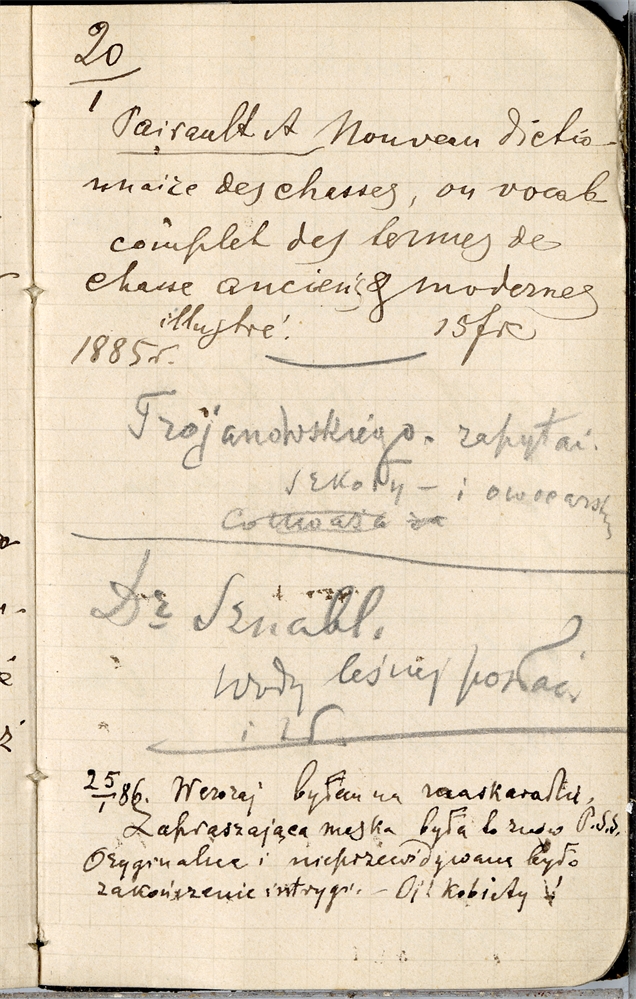 20
1
Pairault A Nouveau dictio-
nnaire des chasses, ou vocab
complet des termes de
chasse anciens & modernes
illustré. 15 fr
1885 r.
Trojanowskiego. zapytać.
szkoły – i owocarsk
Dr Sznabl.
wody leśnej posłać
i
25/1 86. Wczoraj byłem na maskaradzie,
Zapraszająca maska była to znów P.S.S.
Oryginalne i nieprzewidywane było
zakończenie intrygi. – Oj! kobiety!